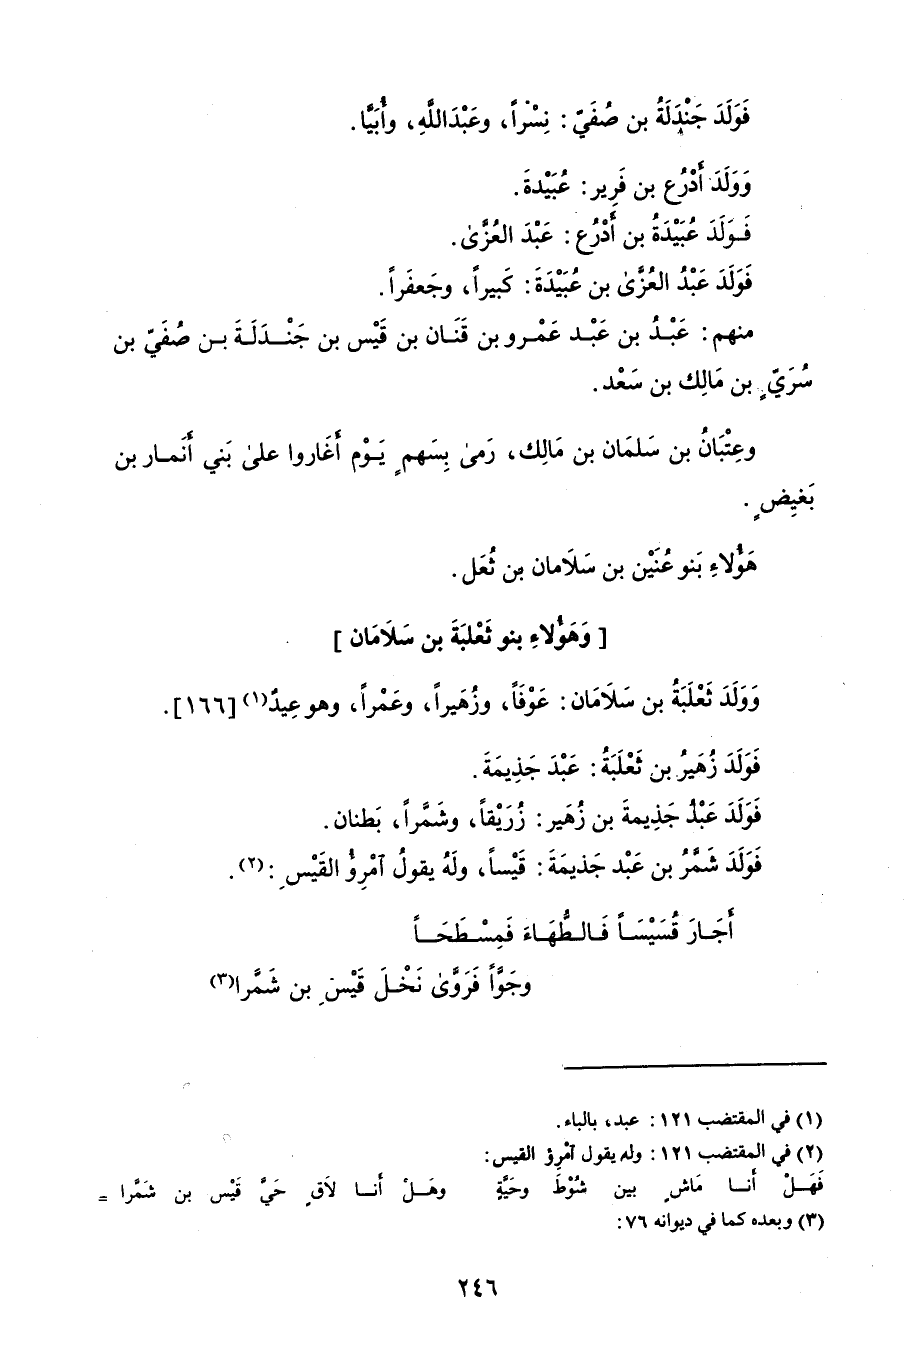 فَوَلَدَ جَنْدَلَةُ بن صُفَيّ : نِسْراً، وعَبْدَاللَّهِ، وأُبَيَّا.
وَوَلَدَ أَدْرُع بن فَرِير : عُبَيْدةَ.
فَوَلَدَ عُبَيْدَةُ بن أَدْرُع : عَبْدَ العُزَّىٰ.
فَوَلَدَ عَبْدُ العُزَّىٰ بن عُبَيْدَةَ : كَبيراً، وجَعفَراً.
منهم : عَبْدُ بن عَبْد عَمْرو بن قَنَان بن قَيْس بن جَنْدَلَةَ بن صُفَيّ بن
سُرَيّ بن مَالِك بن سَعْد.
وعِتْبَانُ بن سَلمَان بن مَالِك، رَمىٰ بِسَهمٍ يَوْم أَغَاروا علىٰ بَني أَنَمار بن
بَغيِضٍ .
هَؤُلاءِ بَنو عُنَيْن بن سَلَامان بن ثُعَل .
[ وَهَؤُلاءِ بنو ثَعْلبَةَ بن سَلَامَان ]
وَوَلَدَ ثَعْلَبَةُ بن سَلَامَان : عَوْفَاً، وزُهَيراً، وعَمْراً، وهو عِيدٌ(١) [١٦٦].
فَوَلَدَ زُهَيرُ بن ثَعْلَبَةُ : عَبْدَ جَذِيمَةَ .
فَوَلَدَ عَبْدُ جَذِيمةَ بن زُهَير : زُرَيْقاً، وشَمَّراً، بَطنان .
فَوَلَدَ شَمَّرُ بن عَبْد جَذيمَةَ : قَيْساً، ولَهُ يقولُ آمْرِؤُ القَيْسِ :(٢).
أَجَارَ قُسَيْسَاً فَالطُّهَاءَ فَمِسْطَحَاً
وجَوَّاً فَرَوَّىٰ نَخْلَ قَيْسِ بن شَمَّرا(٣)
(١) في المقتضب ١٢١ : عبد، بالباء.
(٢) في المقتضب ١٢١ : وله يقول آمْرِؤ القيس :
فَهَلْ أَنا مَاشٍ بين شُوْطَ وحَيَّةٍ وهَلْ أَنا لَاقٍ حَيَّ قَيْس بن شَمَّرا =
(٣) وبعده كما في ديوانه ٧٦ :
٢٤٦